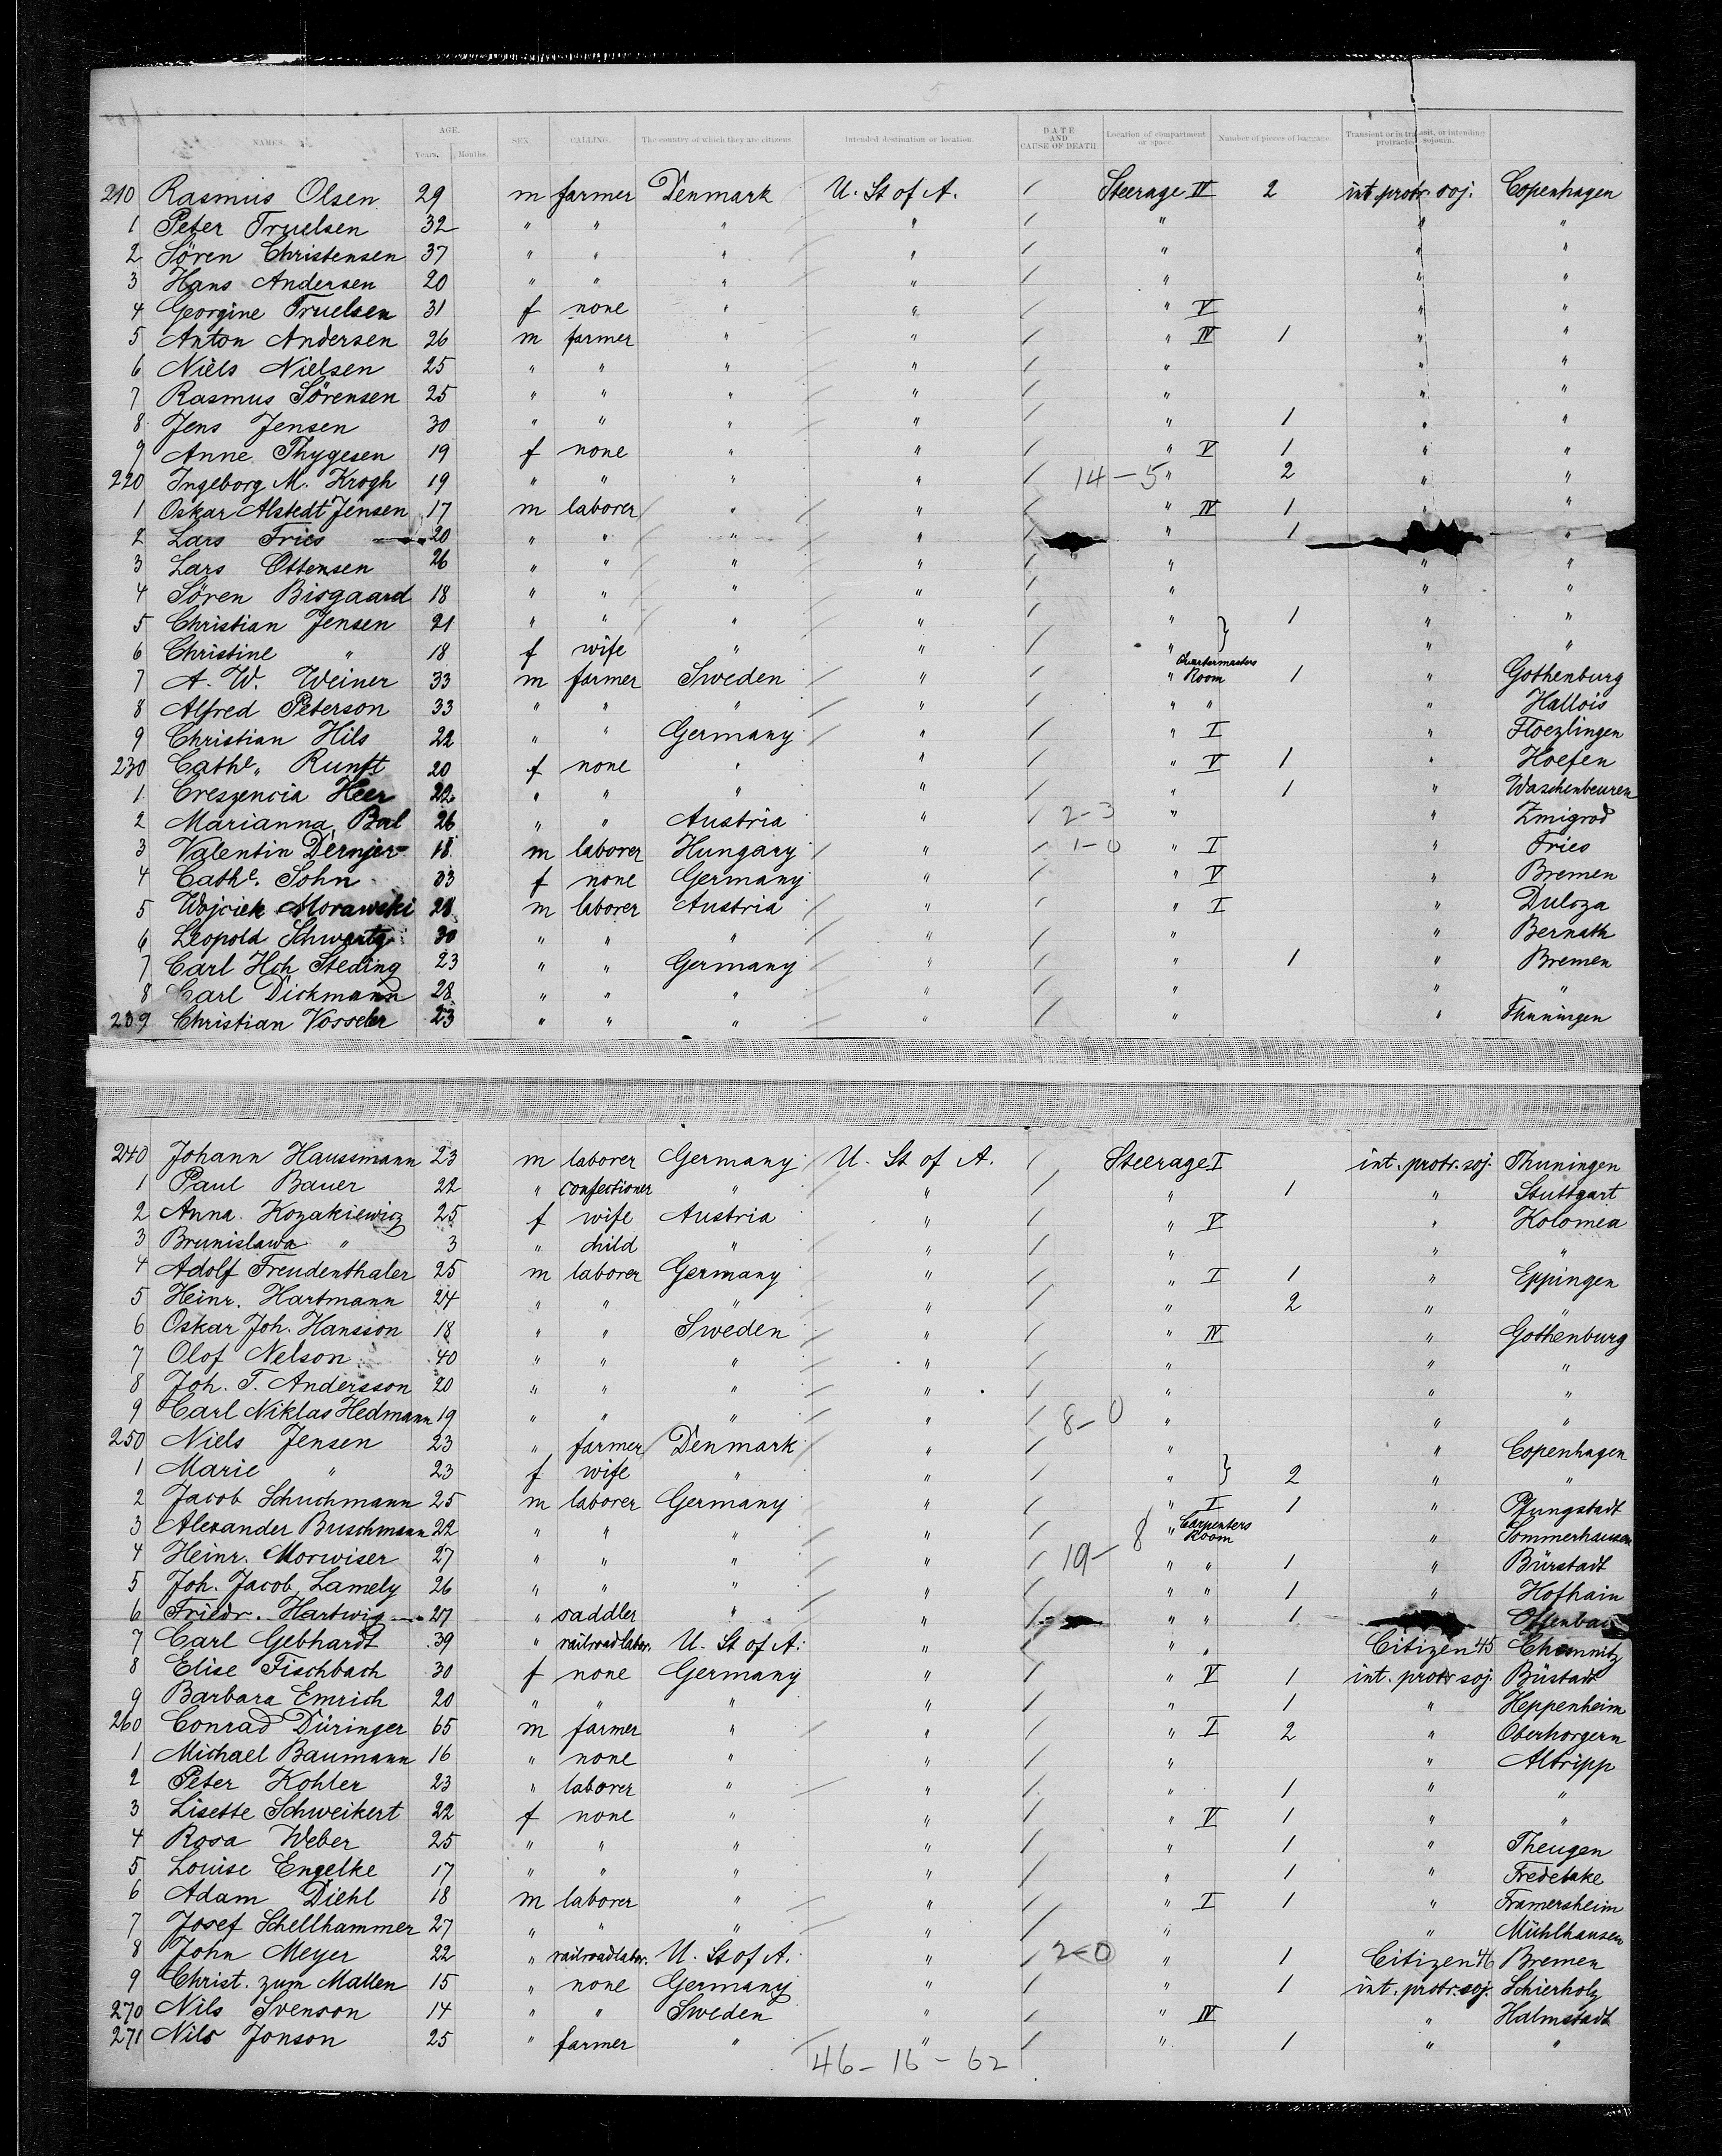 NAMES. AGE. Years. Months. SEX CALLING. The country of which they are citizens. Intended destination or location. DATE AND CAUSE OF DEATH. Location of compartment or space. Number of pieces of baggage. Transient or in transit, or intending protracted sojourn.
210 Rasmus Olsen 29 m farmer Denmark U. St of A. / Steerage IV 2 int. protr. soj. Copenhagen
1 Peter Truelsen 32 " " " " / " " "
2 Sören Christensen 37 " " " " / " " "
3 Hans Andersen 20 " " " " / " " "
4 Georgine Truelsen 31 f none " " / " V " "
5 Anton Andersen 26 m farmer " " / " IV 1 " "
6 Niels Nielsen 25 " " " " / " " "
7 Rasmus Sörensen 25 " " " " / " " "
8 Jens Jensen 30 " " " " / " 1 " "
9 Anne Thygesen 19 f none " " / " V 1 " "
220 Ingeborg M. Krogh 19 " " " " / 14-5 " 2 " "
1 Oskar Alstedt Jensen 17 m laborer " " / " IV 1 " "
2 Lars Fries 20 " " " " / " 1 "
3 Lars Ottensen 26 " " " " / " " "
4 Sören Bisgaard 18 " " " " / " " "
5 Christian Jensen 21 " " " " / " } 1 " "
6 Christine " 18 f wife " " / " " "
7 A. W. Weiner 33 m farmer Sweden " / " Quartermasters Room 1 " Gothenburg
8 Alfred Peterson 33 " " " " / " " " Hallois
9 Christian Hils 22 " " Germany " / " I " Floezlingen
230 Cathe. Runft 20 f none " " / " V 1 " Hoefen
1 Creszencia Heer 22 " " " " / " 1 " Waschenbeuren
2 Marianna Bal 26 " " Austria " / 2-3 " " Zmigrod
3 Valentin Dernjer 18 m laborer Hungary " / 1-0 " I " Fries
4 Cathe. Sohn 33 f none Germany " / " V " Bremen
5 Wojciek Morawski 28 m laborer Austria " / " I " Dulcza
6 Leopold Schwartz 30 " " " " / " " Bernath
7 Carl Hch Steding 23 " " Germany " / " 1 " Bremen
8 Carl Dickmann 28 " " " " / " " "
239 Christian Vosseler 23 " " " " / " " Thuningen
240 Johann Haussmann 23 m laborer Germany U. St of A. / Steerage I int. protr. soj. Thuningen
1 Paul Bauer 22 " confectioner " " / " 1 " Stuttgart
2 Anna Kozakiewicz 25 f wife Austria " / " V " Kolomea
3 Brunislawa " 3 " child " " / " " "
4 Adolf Freudenthaler 25 m laborer Germany " / " I 1 " Eppingen
5 Heinr. Hartmann 24 " " " " / " 2 " "
6 Oskar Joh. Hansson 18 " " Sweden " / " IV " Gothenburg
7 Olof Nelson 40 " " " " / " " "
8 Joh. T. Andersson 20 " " " " / " " "
9 Carl Niklas Hedmann 19 " " " " / 8-0 " " "
250 Niels Jensen 23 " farmer Denmark " / " " Copenhagen
1 Marie " 23 f wife " " / " } 2 " "
2 Jacob Schuchmann 25 m laborer Germany " / " I 1 " Pfungstadt
3 Alexander Buschmann 22 " " " " / " Carpenters Room " Sommerhausen
4 Heinr. Morwiser 27 " " " " / 19-8 " " 1 " Bürstadt
5 Joh. Jacob Lamely 26 " " " " / " " 1 " Hofhain
6 Friedr. Hartwig 27 " saddler " " / " " 1
7 Carl Gebhardt 39 " railroadlabor. U. St of A. " / " " Citizen 45 Chemnitz
8 Elise Fischbach 30 f none Germany " / " V 1 int. protr. soj. Büstadt
9 Barbara Emrich 20 " " " " / " 1 " Heppenheim
260 Conrad Düringer 65 m farmer " " / " I 2 " Oberhorgern
1 Michael Baumann 16 " none " " / " " Altripp
2 Peter Kohler 23 " laborer " " / " 1 " "
3 Lisette Schweikert 22 f none " " / " V 1 " "
4 Rosa Weber 25 " " " " / " 1 " Theugen
5 Louise Engelke 17 " " " " / " 1 " Fredetake
6 Adam Diehl 18 m laborer " " / " I 1 " Framersheim
7 Josef Schellhammer 27 " " " " / " " Mühlhausen
8 John Meyer 22 " railroadlabor. U. St of A. " / 2-0 " 1 Citizen 46 Bremen
9 Christ. zum Mallen 15 " none Germany " / " 1 int. protr. soj. Schierholz
270 Nils Svenson 14 " " Sweden " / " IV " Halmstadt
271 Nils Jonson 25 " farmer " " / " 1 " "
46-16-62